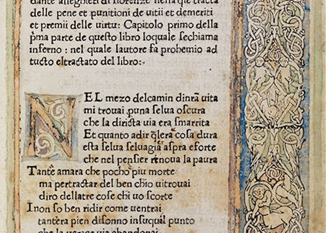 dante alleghieri di fiorenze nella que tracta
delle pene et punitioni de uitii et demeriti
et premii delle uirtu: Capitolo primo della
pma parte de questo libro loquale sechiama
inferno : nel quale lautore fa prohemio ad
tucto eltractato del libro:
NEL mezo delcamin dinrã uita
mi trouai puna selua oscura
che la diricta uia era smarrita
Et quanto adir qlera cosa dura
esta selua seluagia aspra eforte
che nel pensier rinoua la paura
Tante amara che pocho piu morte
ma pertractar del ben chio uitrouai
diro dellatre cose chi uo scorte
I non so ben ridir come uentrai
tantera pien disonno insuqual punto
che la uerace uia abandonai